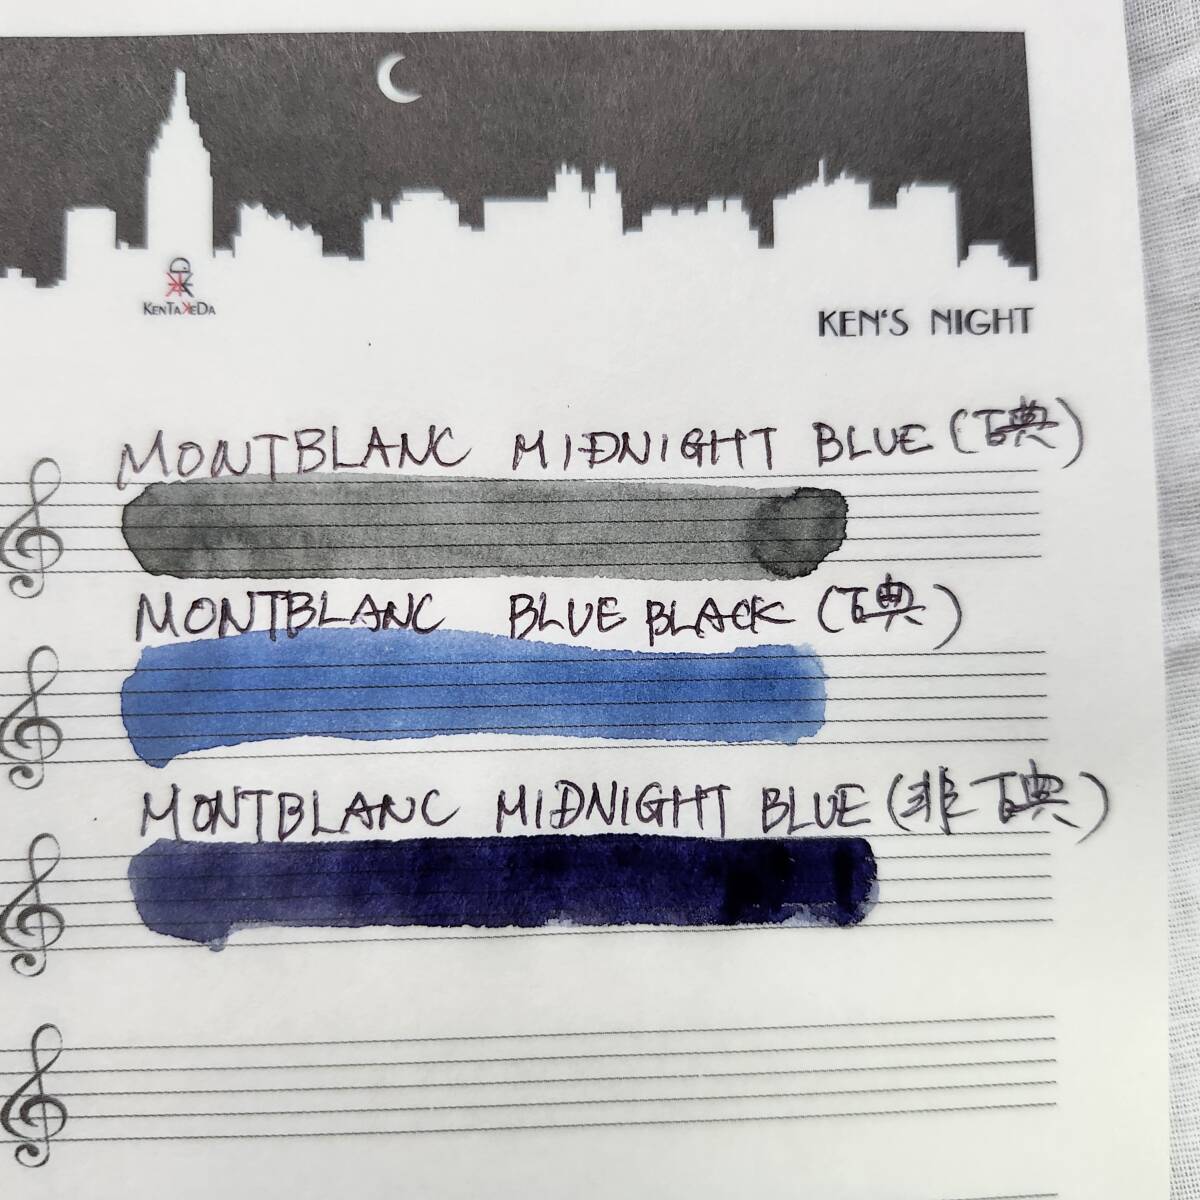 KENTAKEDA
KEN'S NIGHT
MONTBLANC MIDNIGHT BLUE (古典)
MONTBLANC BLUE BLACK (古典)
MONTBLANC MIDNIGHT BLUE (非古典)